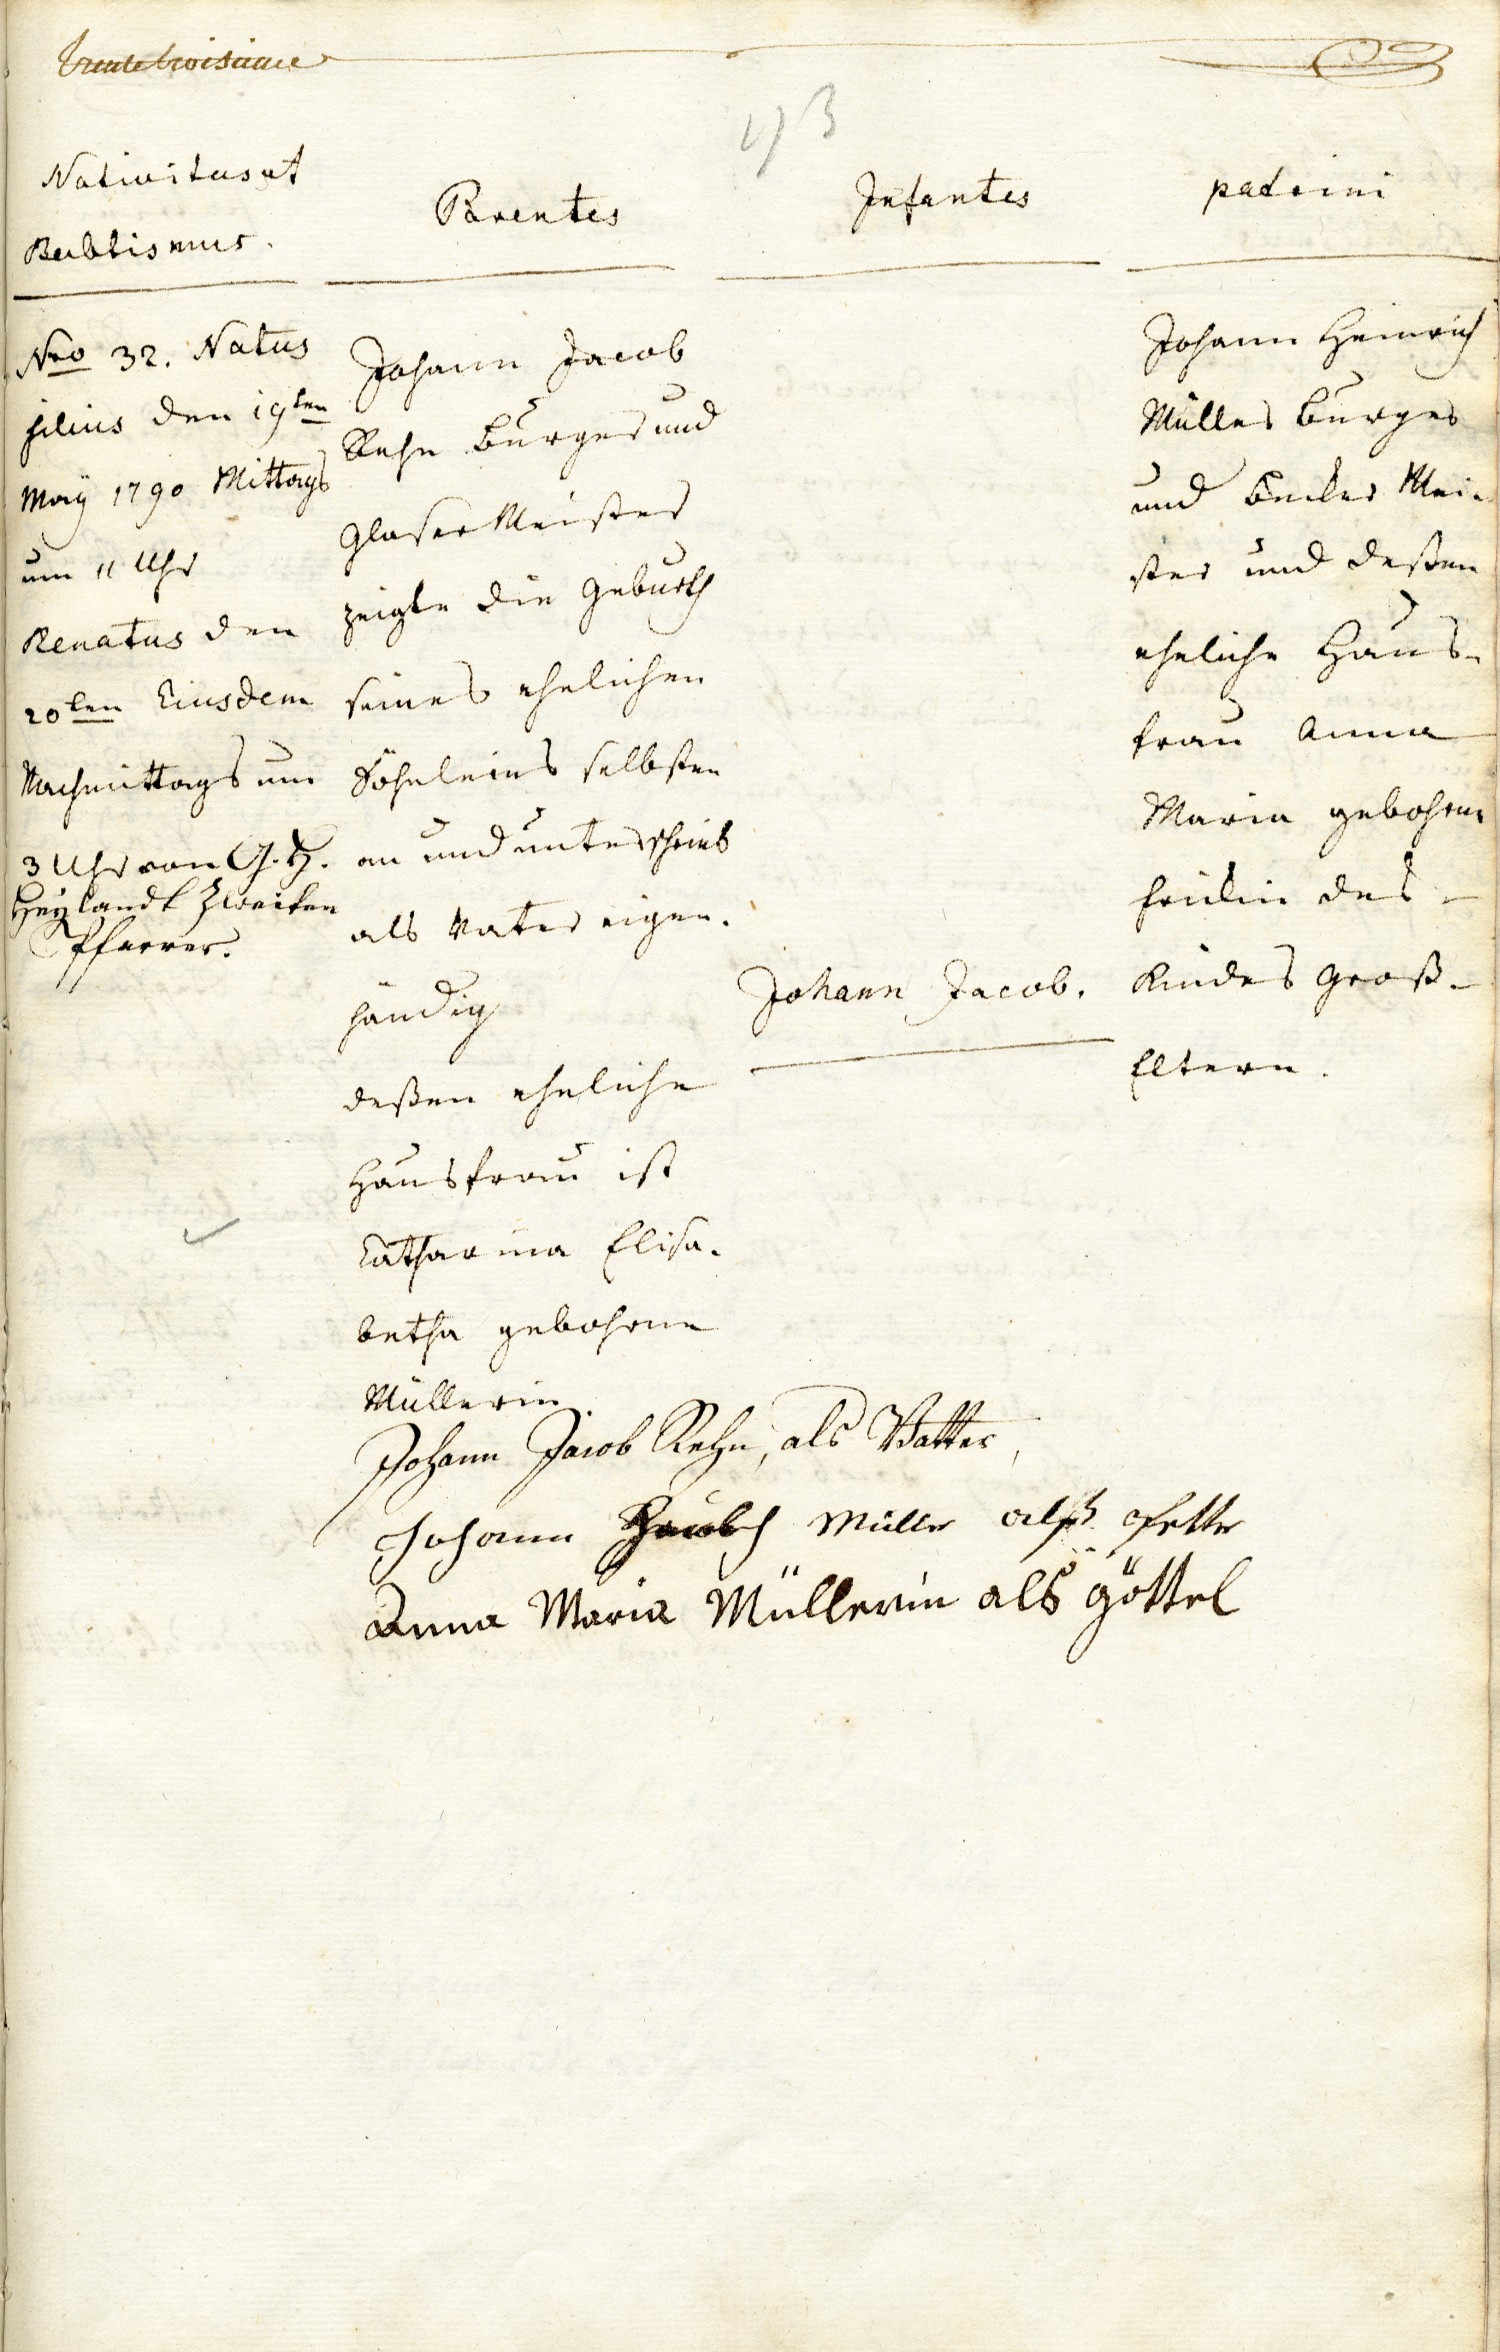 trente troisieme
Nativitas et
Babtismus.
Parentes
Infantes
patrini
Nro 32. Natus
filius den 19ten
May 1790 Mittags
um 11 Uhr
Renatus den
20ten Eiusdem
Nachmittags um
3 Uhr von G. H.
Heylandt Zweiten
Pfarrer.
Johann Jacob
Rehn Burger und
Glaser Meister
zeigte die Geburth
seines ehelichen
Söhnleins selbsten
an und unterschrieb
als Vater eigen-
händig
deßen eheliche
Hausfrau ist
Catharina Elisa-
betha gebohrne
Müllerin.
Johann Jacob.
Johann Heinrich
Müller Burger
und Becker Mei-
ster und deßen
eheliche Haus-
frau Anna
Maria gebohrne
des
Kindes Groß-
Eltern.
Johann Jacob Rehn, als Vatter,
Johann Müller als Pfetter
Anna Maria Müllerin als Göttel